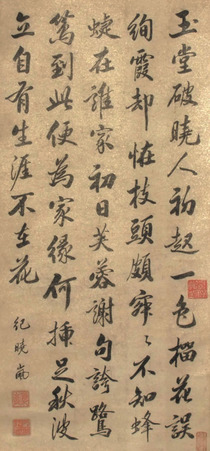 玉堂破曉人初起一色榴花誤
絢霞却恠枝頭頗寂々不知蜂
蜨在誰家初日芙蓉謝句誇鷺
鷥到此便為家緣何插足秋波
立自有生涯不在花
紀曉嵐